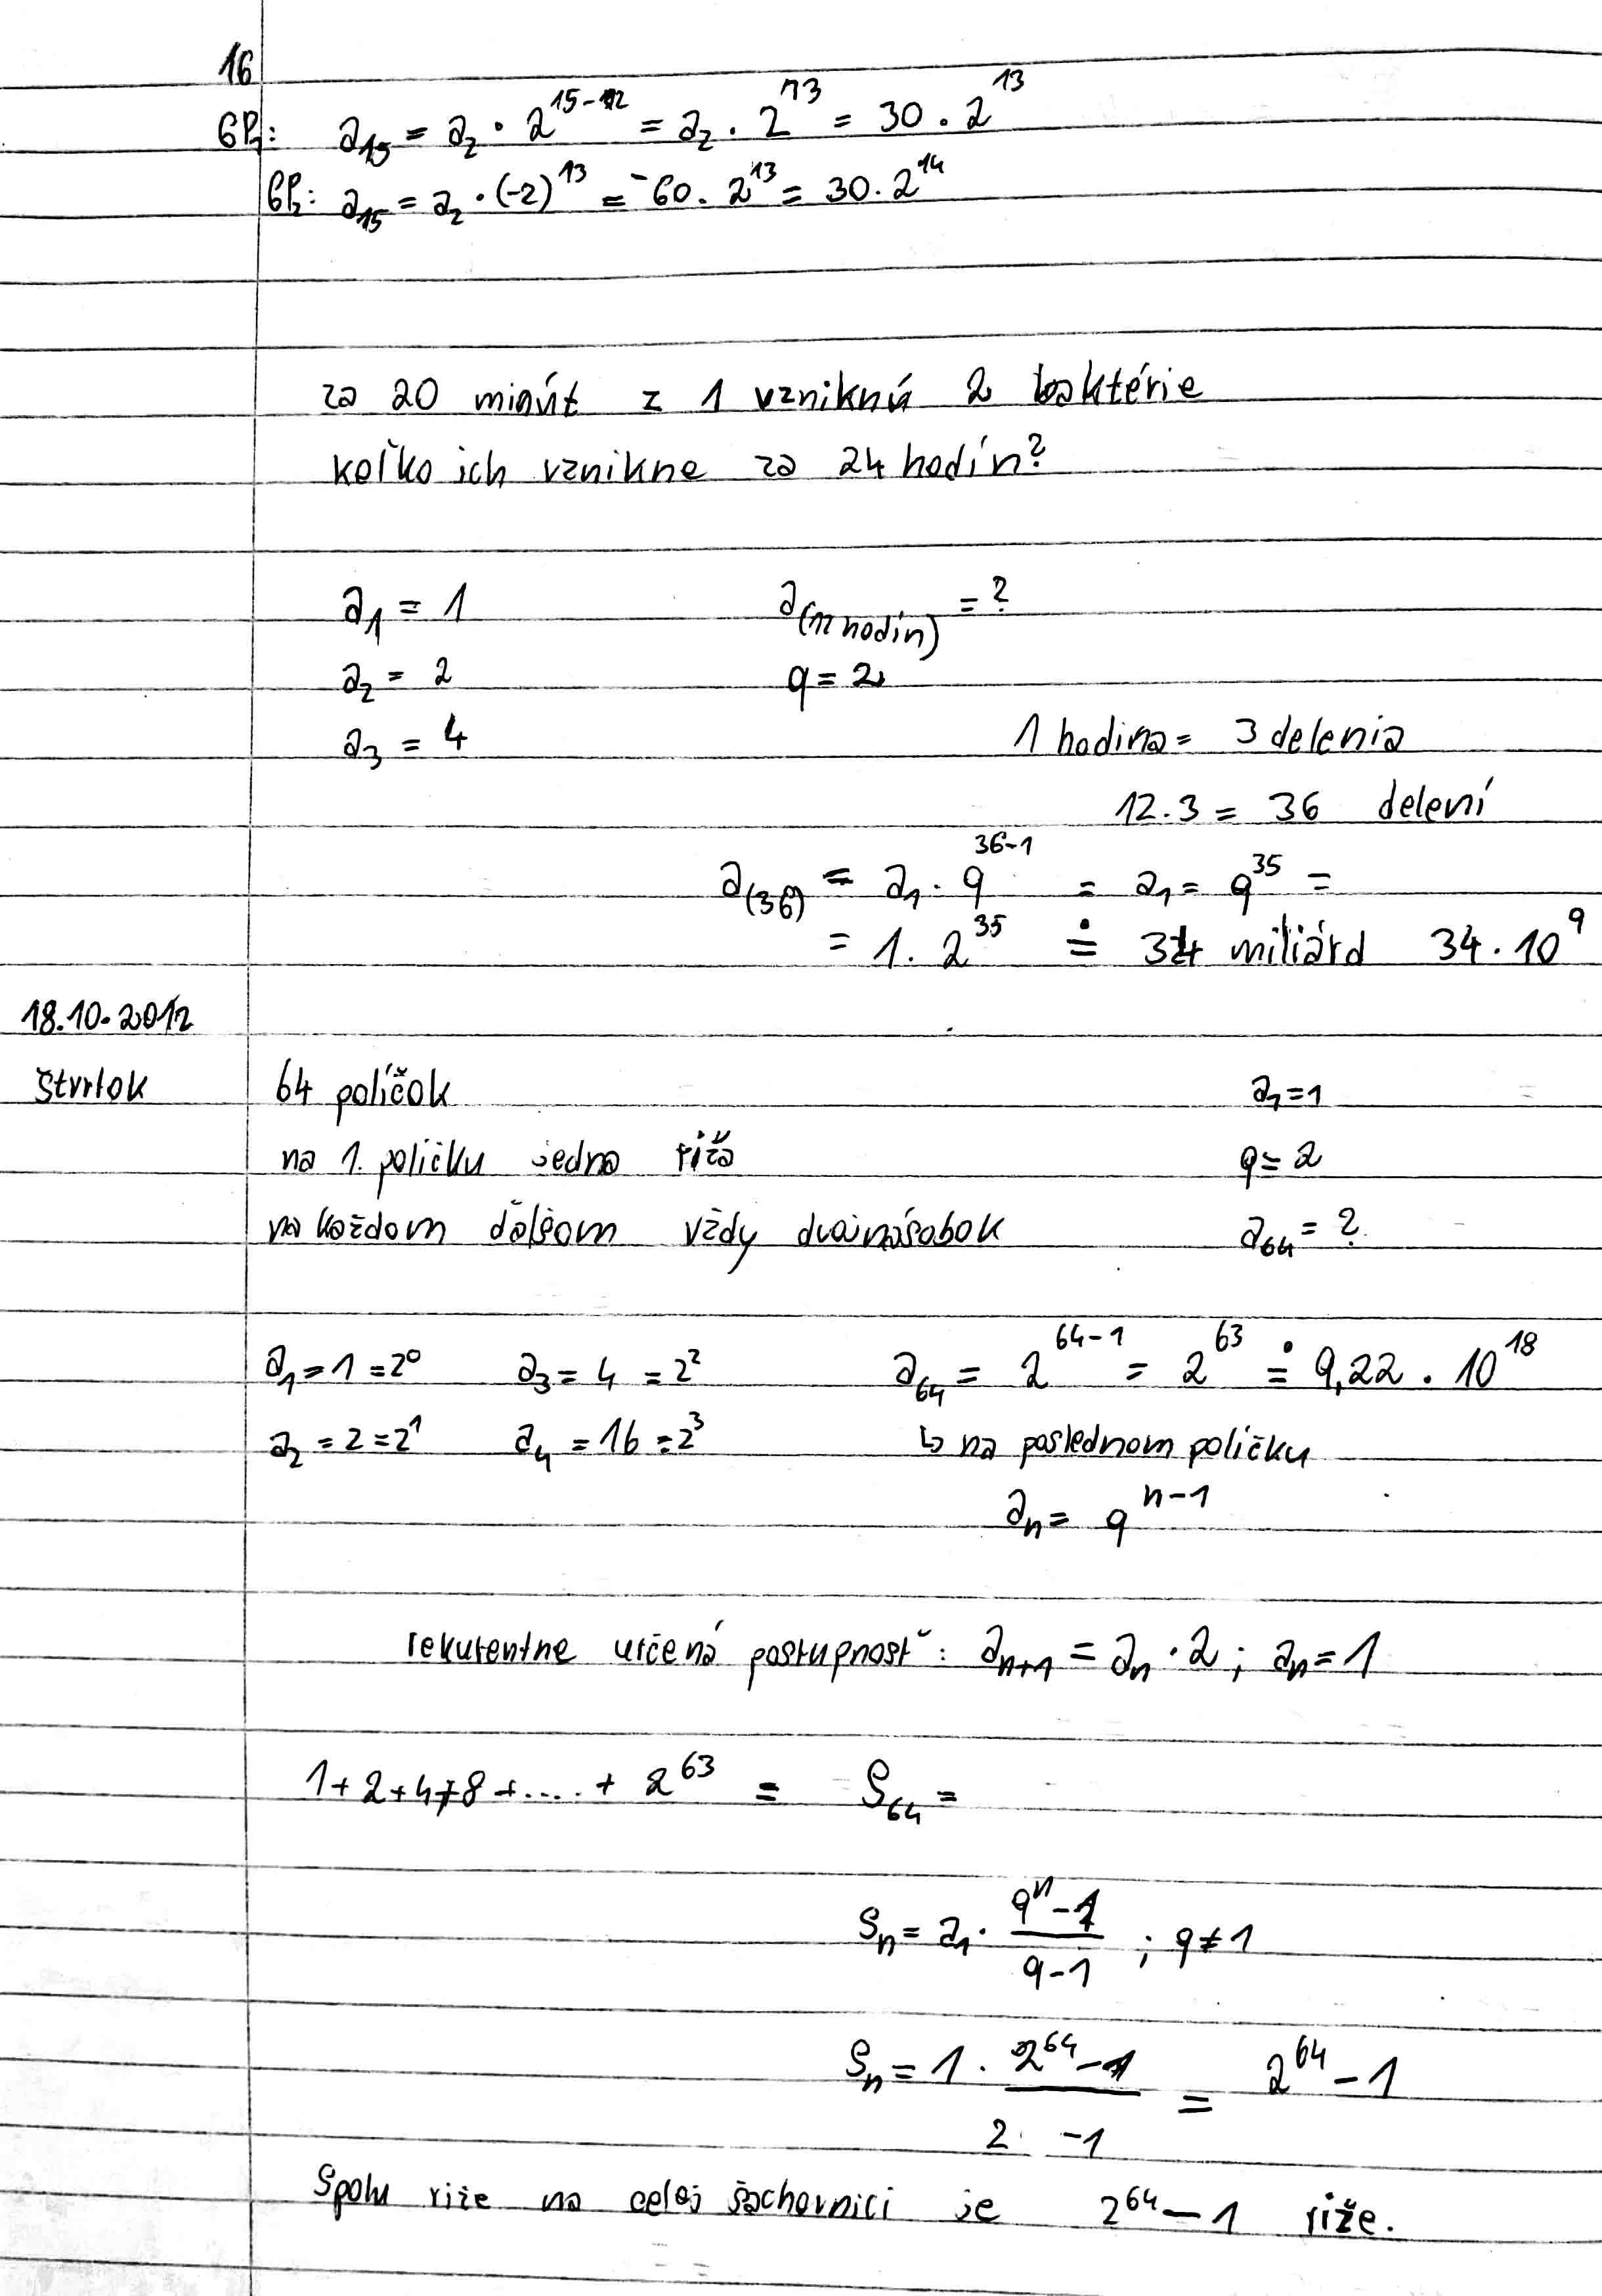 16
GP₁: a₁₅ = a₂ · 2¹⁵⁻² = a₂ · 2¹³ = 30 · 2¹³
GP₂: a₁₅ = a₂ · (-2)¹³ = -60 · 2¹³ = 30 · 2¹⁴
za 20 minút z 1 vzniknú 2 baktérie
koľko ich vznikne za 24 hodín?
a₁ = 1 a(12 hodín) = ?
a₂ = 2 q = 2
a₃ = 4 1 hodina = 3 delenia
12 . 3 = 36 delení
a(36) = a₁ · q³⁶⁻¹ = a₁ = q³⁵ =
= 1 . 2³⁵ ≐ 34 miliárd 34 . 10⁹
18.10.2012
štvrtok 64 políčok a₁ = 1
na 1. políčku jedna ríža q = 2
na každom ďalšom vždy dvojnásobok a₆₄ = ?
a₁ = 1 = 2⁰ a₃ = 4 = 2² a₆₄ = 2⁶⁴⁻¹ = 2⁶³ ≐ 9,22 . 10¹⁸
a₂ = 2 = 2¹ a₄ = 16 = 2³ ↳ na poslednom políčku
aₙ = qⁿ⁻¹
rekurentne určená postupnosť: aₙ₊₁ = aₙ · 2 ; aₙ = 1
1 + 2 + 4 + 8 + .... + 2⁶³ = S₆₄ =
Sₙ = a₁ · (qⁿ - 1)/(q - 1) ; q ≠ 1
Sₙ = 1 · (2⁶⁴ - 1)/(2 - 1) = 2⁶⁴ - 1
Spolu riže na celej šachovnici je 2⁶⁴ - 1 riže.